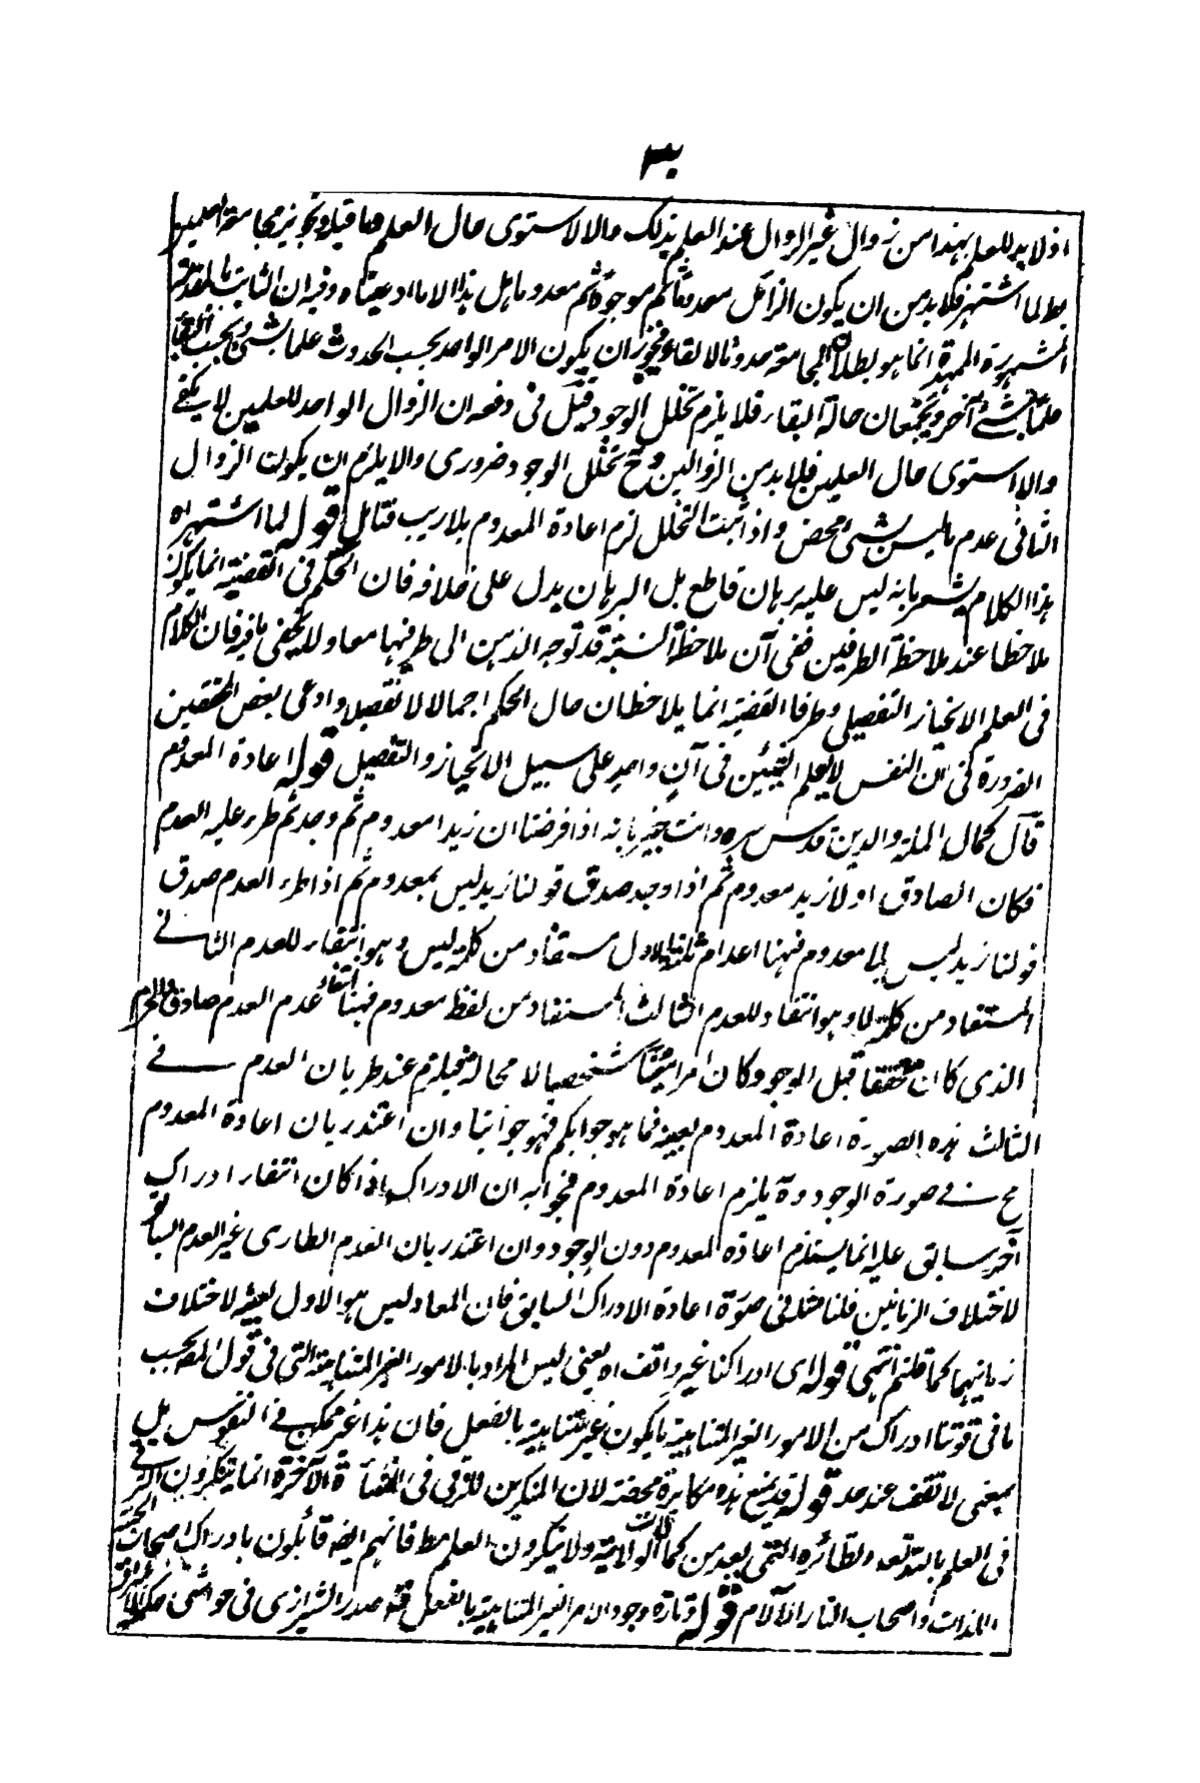 ٣٠
اذ لا بد للعلم بهذا من زوال غير الزوال عند العلم بذلك والا لاستوى حال العلم
بط لما اشتهر فلا بد من ان يكون الزائل معدوما ثم موجودا ثم معدوما هل هذا الا ما ادعيناه وفيه ان الثابت بالمقدمة
المشهورة الممهدة انما هو بطلان المجامعة حدوثا لا بقاء فيجوز ان يكون الامر الواحد بحسب الحدوث علما بشئ وبحسب البقاء
علما بشئ آخر ويجتمعان حالة البقاء فلا يلزم تخلل الوجود قيل فى دفعه ان الزوال الواحد للعلمين لا يكفى
والا استوى حال العلمين فلا بد من الزوالين وح تخلل الوجود ضرورى والا يلزم ان يكون الزوال
الثانى عدم ما ليس بشئ محض واذا ثبت التخلل لزم اعادة المعدوم بلا ريب فتامل قوله لما اشتهر اه
هذا الكلام يشعر بانه ليس عليه برهان قاطع بل البرهان يدل على خلافه فان الحكم فى القضية انما يكون
ملاحظا عند ملاحظة الطرفين ففى آن ملاحظة النسبة قد توجه الذهن الى طرفيها معا ولا يخفى ما فيه فان الكلام
فى العلم الانحيازى التفصيلى وطرفا القضية انما يلاحظان حال الحكم اجمالا لا تفصيلا وادعى بعض المحققين
الضرورة فى ان النفس لا يعلم الشيئين فى آن واحد على سبيل الانحياز والتفصيل قوله اعادة المعدوم
قال كمال الملة والدين قدس سره وانت خبير بانه اذا فرضنا ان زيدا معدوم ثم وجد ثم طرء عليه العدم
فكان الصادق اولا زيد معدوم ثم اذا وجد صدق قولنا زيد ليس بمعدوم ثم اذا طرء العدم صدق
قولنا زيد ليس بلا معدوم فههنا اعدام ثلثة الاول مستفاد من كلمة ليس وهو انتفاء للعدم الثانى
المستفاد من كلمة لا وهو انتفاء للعدم الثالث المستفاد من لفظ معدوم فههنا انتفاء عدم العدم صادق والعدم
الذى كان متحققا قبل الوجود كان امرا معينا شخصيا لا محالة فيلزم عند طريان العدم فى
الثالث هذه الصورة اعادة المعدوم بعينه فما هو جوابكم فهو جوابنا وان اعتذر بان اعادة المعدوم
مح فى صورة الوجود وهنا يلزم اعادة المعدوم فجوابه ان الادراك اذا كان انتفاء ادراك
آخر سابق عليه انما يستلزم اعادة المعدوم دون الوجود وان اعتذر بان العدم الطارى غير العدم السابق
لاختلاف الزمانين قلنا مثله فى صورة اعادة الادراك السابق فان المعاد ليس هو الاول بعينه لاختلاف
زمانيهما كما قلتم انتهى قوله اى ادراكنا غير واقف اه يعنى ليس المراد بالامور الغير المتناهية التى فى قول المصنف بحسب
ما فى قوتنا ادراك من الامور الغير المتناهية ما يكون غير متناهية بالفعل فان هذا غير ممكن فى النفوس بل
بمعنى لا تقف عند حد قوله قد يمنع هذه مكابرة محضة لان المنكرين للترقى فى النشأة الآخرة انما ينكرون الترقى
فى العلم بالله تعه ونظائره التى يعد من كمالات الولاية ولا ينكرون العلم مط فانهم ايضا قائلون بادراك اصحاب الجنة
اللذات واصحاب النار الآلام قوله وتارة وجود الامر الغير المتناهية بالفعل قد صدر الشيرازى فى حواشى حكمة الاشراق